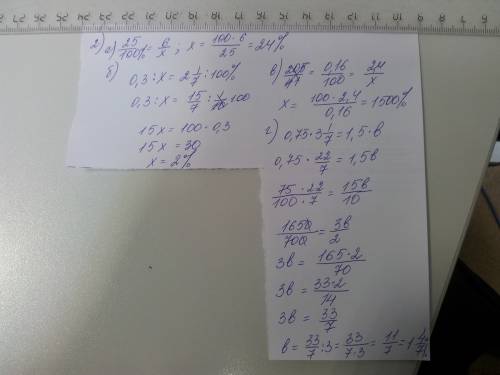 2) а) 25/100% = 6/x ; x = 100·6/25 = 24%
б)
0,3 : x = 2 1/7 : 100%
0,3 : x = 15/7 : 100
15x = 100·0,3
15x = 30
x = 2%
в) = 0,16/100 = 24/x
x = 100·2,4/0,16 = 1500%
г) 0,75·3 1/7 = 1,5·в
0,75·22/7 = 1,5в
75·22/100·7 = 15в/10
1650/700 = 3в/2
3в = 165·2/70
3в = 33·2/14
3в = 33/7
в = 33/7 : 3 = 33/7·3 = 11/7 = 1 4/7